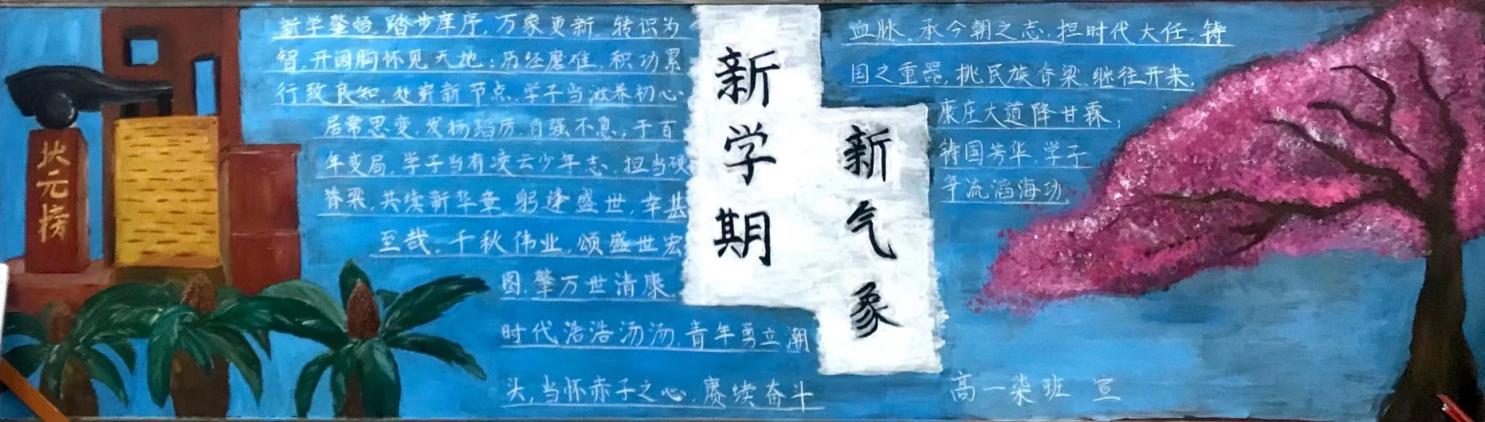 状元榜
新学整始,踏步庠序,万象更新 转识为
智,开阔胸怀见天地;历经磨难,积功累
行致良知,处崭新节点,学子当滋养初心
居常思变,发扬蹈厉,自强不息;于百
年变局,学子当有凌云少年志,担当硬
脊梁,共续新华章,躬逢盛世,幸甚
至哉,千秋伟业,颂盛世宏
图,擎万世清康,
时代浩浩汤汤,青年勇立潮
头,当怀赤子之心,赓续奋斗
新学期
新气象
血脉,承今朝之志,担时代大任,铸
国之重器,挑民族脊梁,继往开来,
康庄大道降甘霖,
铸国芳华,学子
争流滔海功
高一柒班 宣